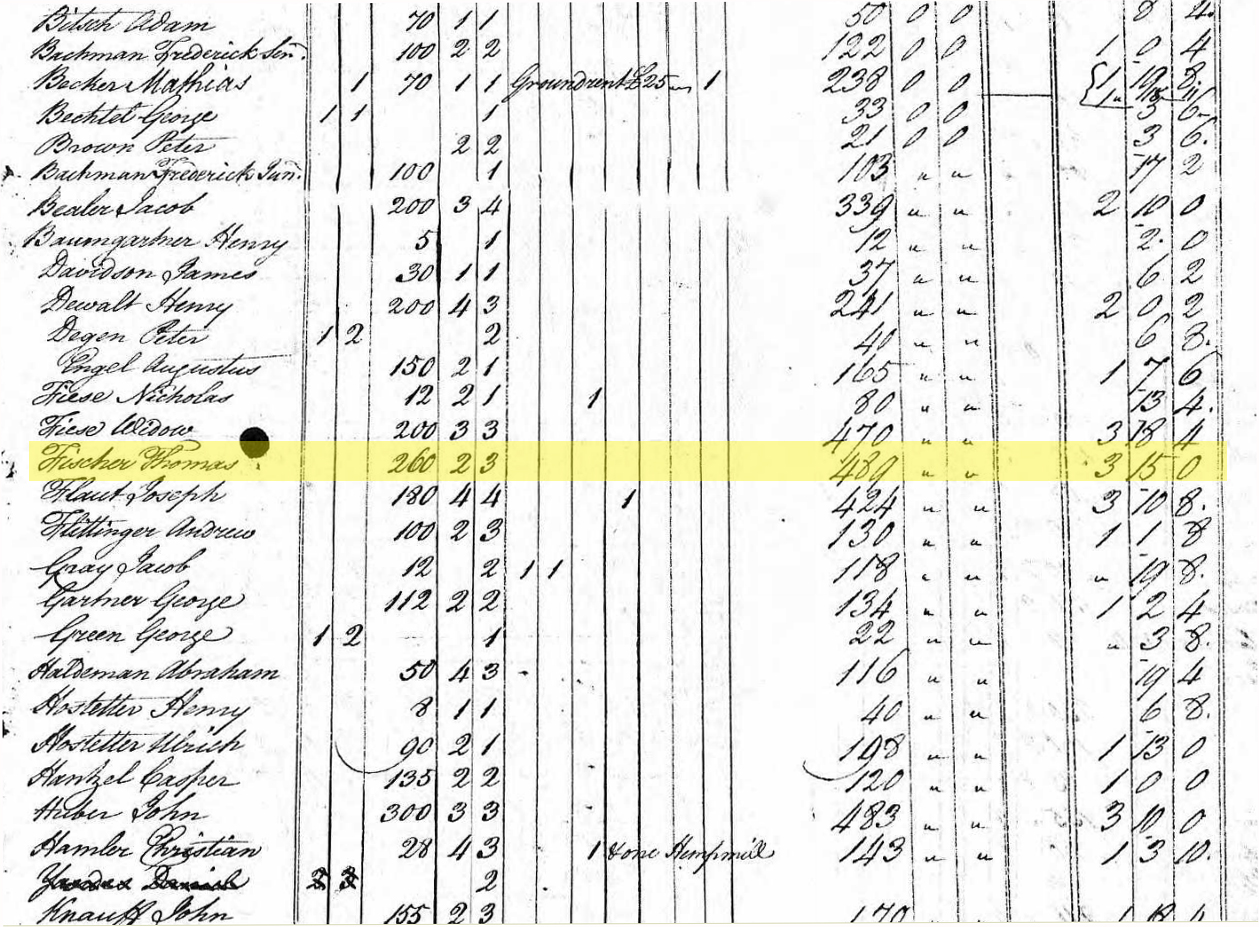 Bitsch Adam 70 1 1 50 0 0 8 4.
Bachman Frederick Senr. 100 2 2 122 0 0 1 0 4
Becker Mathias 1 70 1 1 Groundrent £25 1 238 0 0 1 19 8.
Bechtel George 1 1 1 33 0 0 5 6
Brown Peter 2 2 21 0 0 3 6.
Bachman Frederick Junr. 100 1 103 " " 17 2
Bealer Jacob 200 3 4 339 " " 2 10 0
Baumgartner Henry 5 1 12 " " 2. 0
Davidson James 30 1 1 37 " " 6 2
Dewalt Henry 200 4 3 241 " " 2 0 2
Degen Peter 1 2 2 40 " " 6 8.
Engel Augustus 150 2 1 165 " " 1 7 6
Fiese Nicholas 12 2 1 1 80 " " 13 4.
Fiese Widow 200 3 3 470 " " 3 18 4
Fischer Thomas 260 2 3 489 " " 3 15 0
Flaut Joseph 180 4 4 1 424 " " 3 10 8.
Flittinger Andrew 100 2 3 130 " " 1 1 8
Gray Jacob 12 2 1 1 118 " " " 19 8.
Gartner George 112 2 2 134 " " 1 2 4
Green George 1 2 1 22 " " " 3 8.
Haldeman Abraham 50 4 3 116 " " 19 4
Hostetter Henry 8 1 1 40 " " 6 8.
Hostetter Ulrich 90 2 1 198 " " 1 13 0
Hantzel Casper 135 2 2 120 " " 1 0 0
Huber John 300 3 3 483 " " 3 10 0
Hamler Christian 28 4 3 1 & one Hempmill 143 " " 1 3 10.
2
Knauff John 155 2 3 170 1 18 4